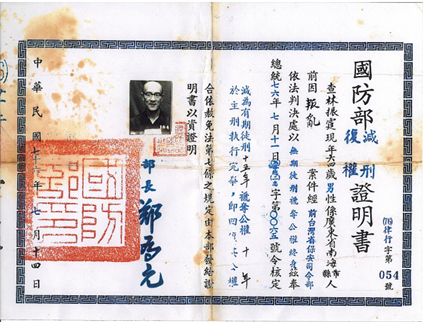 國防部 減刑 復權 證明書
(76)律行字第054號
查林振霆現年六四歲男性係廣東省南海縣市人
前因叛亂案件經前台灣省保安司令部
依法判決處以無期徒刑褫奪公權終身茲奉
總統七六年七月十一日字第〇〇六五號令核定
減為有期徒刑十五年褫奪公權十年
於主刑執行完畢,即回復公權
合依赦免法第七條之規定由本部發給證
明書以資證明
部長 鄭為元
中華民國七十六年七月十四日
國防部印